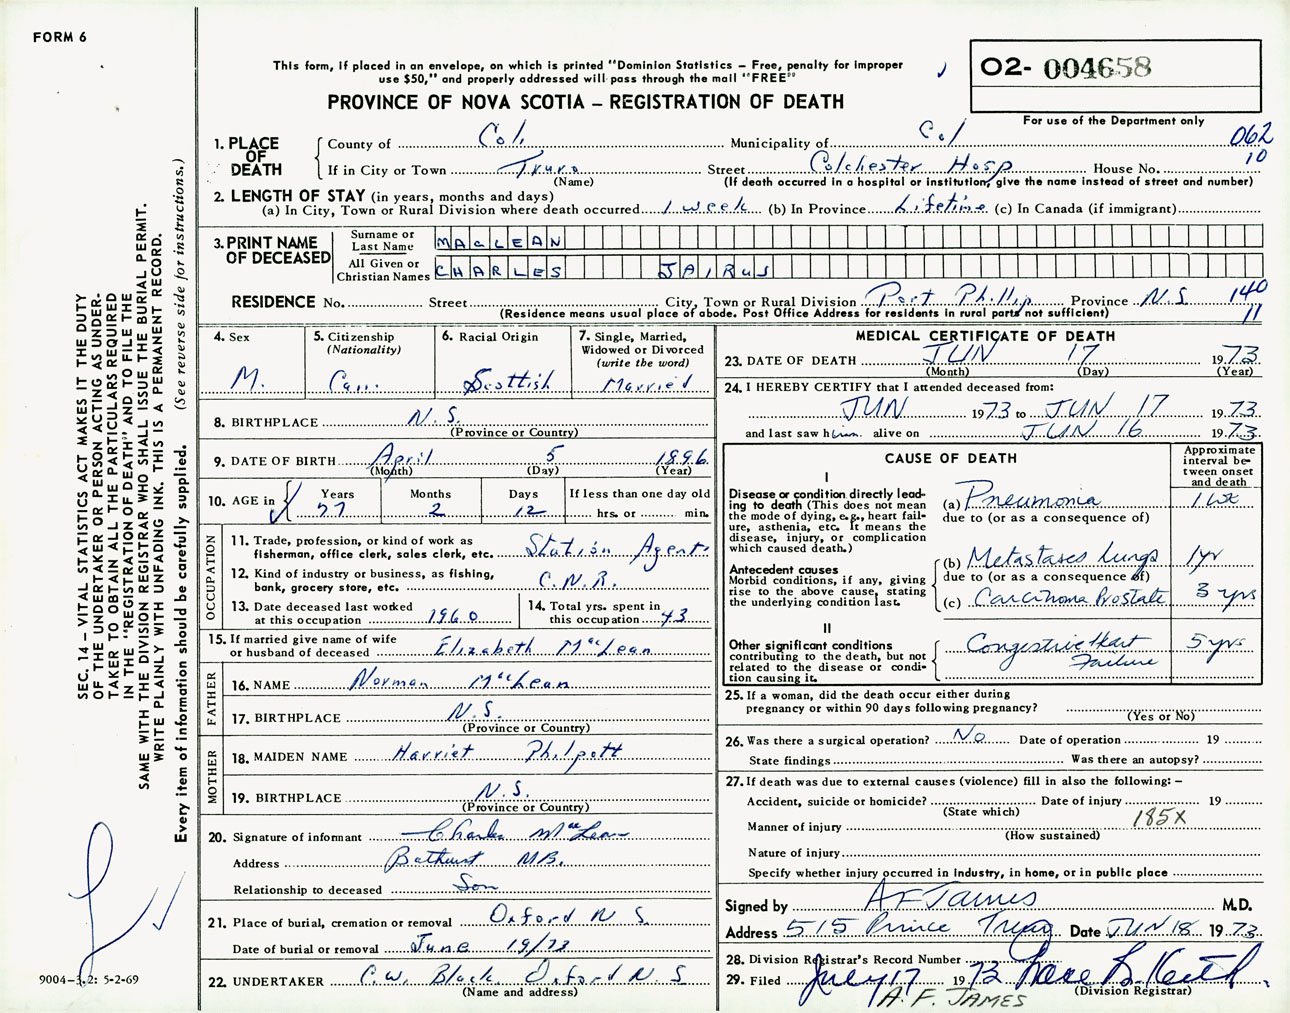 FORM 6
This form, if placed in an envelope, on which is printed "Dominion Statistics – Free, penalty for improper
use $50," and properly addressed will pass through the mail "FREE"
PROVINCE OF NOVA SCOTIA – REGISTRATION OF DEATH
O2- 004658
For use of the Department only
062
10
1. PLACE OF DEATH
County of Col. Municipality of Col
If in City or Town Truro Street Colchester Hosp House No.
(Name) (If death occurred in a hospital or institution, give the name instead of street and number)
2. LENGTH OF STAY (in years, months and days)
(a) In City, Town or Rural Division where death occurred 1 week (b) In Province Lifetime (c) In Canada (if immigrant)
3. PRINT NAME OF DECEASED
Surname or Last Name MACLEAN
All Given or Christian Names CHARLES JAIRUS
RESIDENCE No. Street City, Town or Rural Division Port Phillip Province N.S. 140
(Residence means usual place of abode. Post Office Address for residents in rural parts not sufficient) 11
4. Sex
M.
5. Citizenship
(Nationality)
Can.
6. Racial Origin
Scottish
7. Single, Married,
Widowed or Divorced
(write the word)
Married
8. BIRTHPLACE N.S.
(Province or Country)
9. DATE OF BIRTH April 5 1896
(Month) (Day) (Year)
10. AGE in Years Months Days If less than one day old
77 2 12 hrs. or min.
OCCUPATION
11. Trade, profession, or kind of work as
fisherman, office clerk, sales clerk, etc. Station Agent
12. Kind of industry or business, as fishing,
bank, grocery store, etc. C.N.R.
13. Date deceased last worked
at this occupation 1960
14. Total yrs. spent in
this occupation 43
15. If married give name of wife
or husband of deceased Elizabeth MacLean
FATHER
16. NAME Norman MacLean
17. BIRTHPLACE N.S.
(Province or Country)
MOTHER
18. MAIDEN NAME Harriet Philpott
19. BIRTHPLACE N.S.
(Province or Country)
20. Signature of informant Charles MacLean
Address Bathurst N.B.
Relationship to deceased Son
21. Place of burial, cremation or removal Oxford N S
Date of burial or removal June 19/73
22. UNDERTAKER C.W. Black Oxford N.S
(Name and address)
MEDICAL CERTIFICATE OF DEATH
23. DATE OF DEATH JUN 17 1973
(Month) (Day) (Year)
24. I HEREBY CERTIFY that I attended deceased from:
JUN 1973 to JUN 17 1973
and last saw him alive on JUN 16 1973
CAUSE OF DEATH
Approximate interval between onset and death
I
Disease or condition directly lead-
ing to death (This does not mean
the mode of dying, e.g., heart fail-
ure, asthenia, etc. It means the
disease, injury, or complication
which caused death.)
(a) Pneumonia 1 wk
due to (or as a consequence of)
Antecedent causes
Morbid conditions, if any, giving
rise to the above cause, stating
the underlying condition last.
(b) Metastases Lungs 1yr
due to (or as a consequence of)
(c) Carcinoma Prostate 3 yrs
II
Other significant conditions
contributing to the death, but not
related to the disease or condi-
tion causing it.
Congestive Heart
Failure 5 yrs
25. If a woman, did the death occur either during
pregnancy or within 90 days following pregnancy?
(Yes or No)
26. Was there a surgical operation? No Date of operation 19
State findings Was there an autopsy?
27. If death was due to external causes (violence) fill in also the following: –
Accident, suicide or homicide? Date of injury 19
(State which)
Manner of injury 185X
(How sustained)
Nature of injury
Specify whether injury occurred in industry, in home, or in public place
Signed by A F James M.D.
Address 515 Prince Truro Date JUN 18 1973
28. Division Registrar's Record Number
29. Filed July 17 1973
(Division Registrar)
A. F. JAMES
SEC. 14 – VITAL STATISTICS ACT MAKES IT THE DUTY
OF THE UNDERTAKER OR PERSON ACTING AS UNDER-
TAKER TO OBTAIN ALL THE PARTICULARS REQUIRED
IN THE "REGISTRATION OF DEATH" AND TO FILE THE
SAME WITH THE DIVISION REGISTRAR WHO SHALL ISSUE THE BURIAL PERMIT.
WRITE PLAINLY WITH UNFADING INK. THIS IS A PERMANENT RECORD.
Every item of information should be carefully supplied. (See reverse side for instructions.)
9004-3.2: 5-2-69